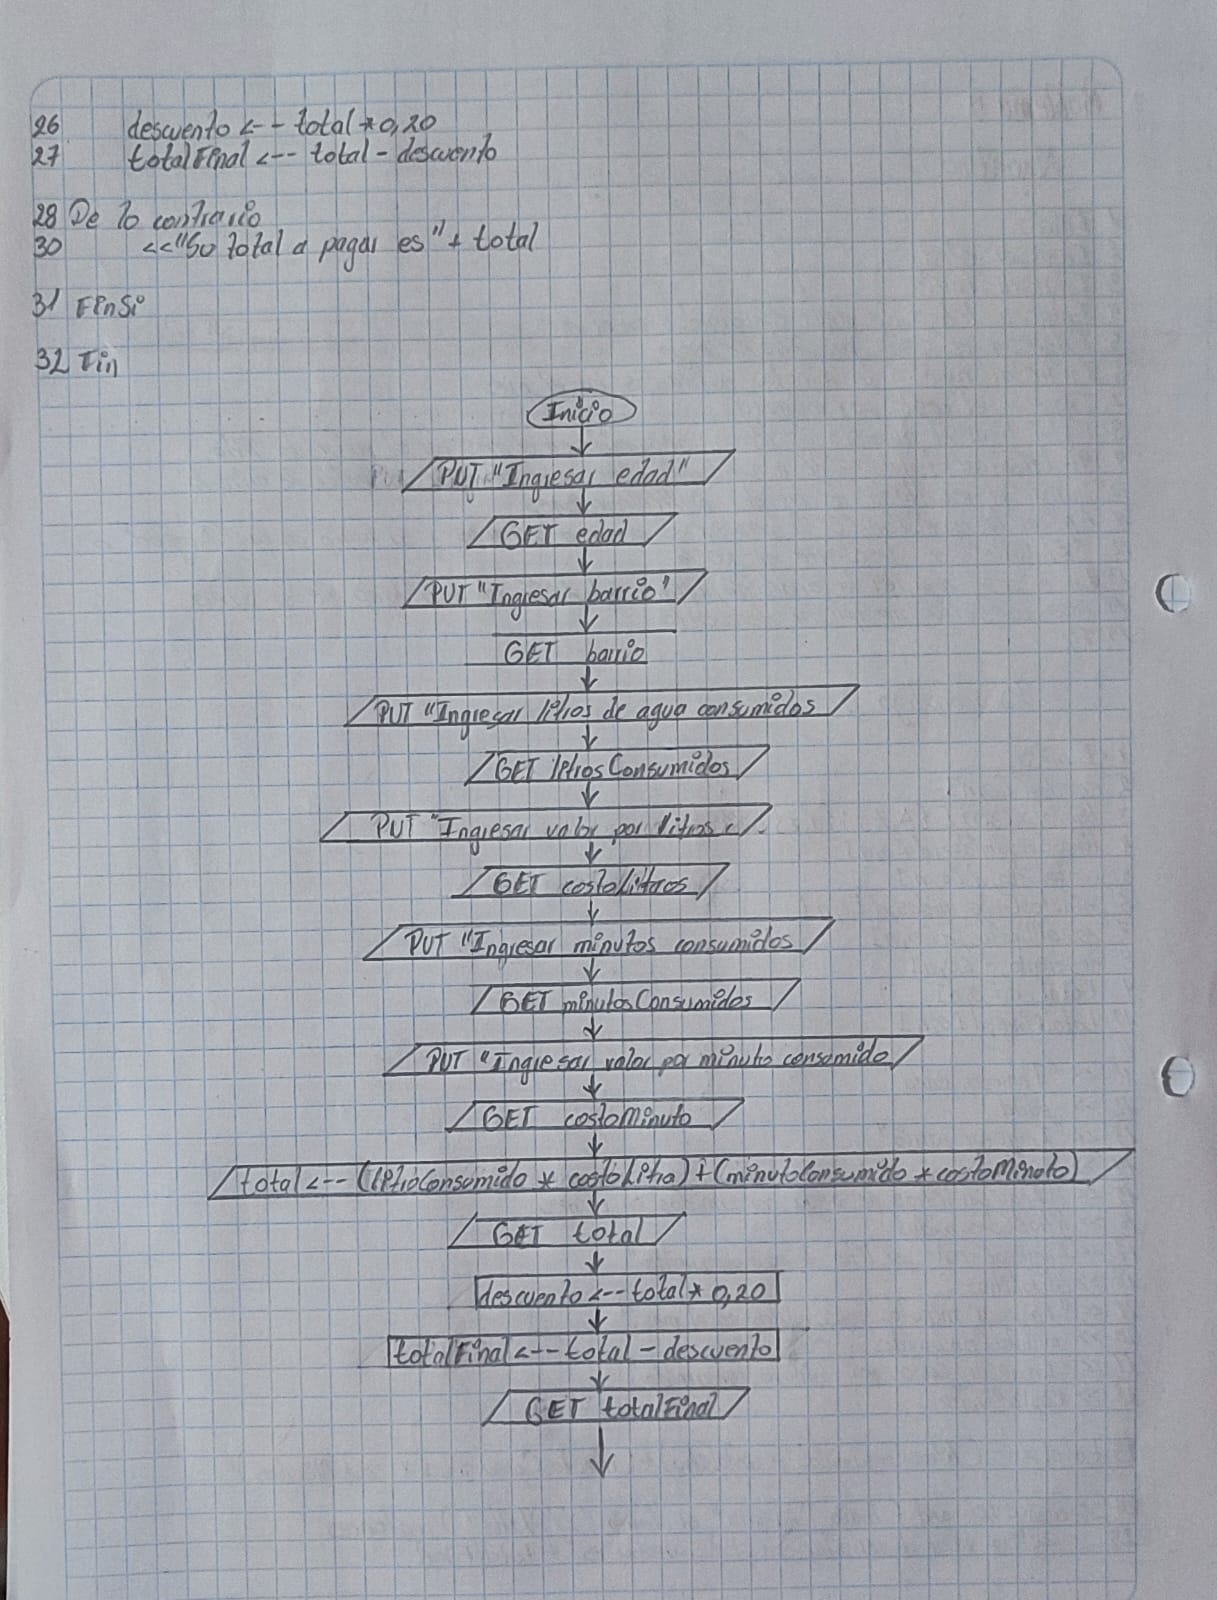 26 descuento <-- total * 0,20
27 totalFinal <--- total - descuento
28 De lo contrario
30 <<"Su total a pagar es" + total
31 FinSi
32 Fin
Inicio
PUT "Ingresar edad"
GET edad
PUT "Ingresar barrio"
GET barrio
PUT "Ingresar litros de agua consumidos
GET litrosConsumidos
PUT "Ingresar valor por litros
GET costoLitros
PUT "Ingresar minutos consumidos
GET minutosConsumidos
PUT "Ingresar valor por minuto consumido
GET costoMinuto
total <--- (litroConsumido * costoLitro) + (minutoConsumido * costoMinuto)
GET total
descuento <--- total * 0,20
totalFinal <--- total - descuento
GET totalFinal